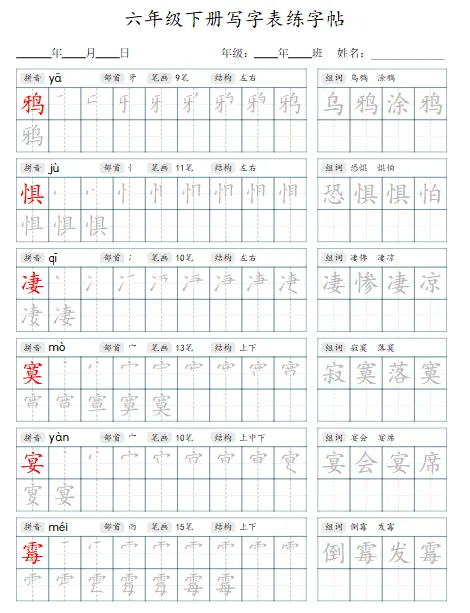 六年级下册写字表练字帖
______年____月____日 年级：____年____班 姓名：____________
拼音 yā 部首 牙 笔画 9笔 结构 左右 组词 乌鸦 涂鸦
鸦 乌鸦涂鸦
鸦
拼音 jù 部首 忄 笔画 11笔 结构 左右 组词 恐惧 惧怕
惧 恐惧惧怕
惧
拼音 qī 部首 冫 笔画 10笔 结构 左右 组词 凄惨 凄凉
凄 凄惨凄凉
凄凄
拼音 mò 部首 宀 笔画 13笔 结构 上下 组词 寂寞 落寞
寞 寂寞落寞
寞
拼音 yàn 部首 宀 笔画 10笔 结构 上中下 组词 宴会 宴席
宴 宴会宴席
宴
拼音 méi 部首 雨 笔画 15笔 结构 上下 组词 倒霉 发霉
霉 倒霉发霉
霉